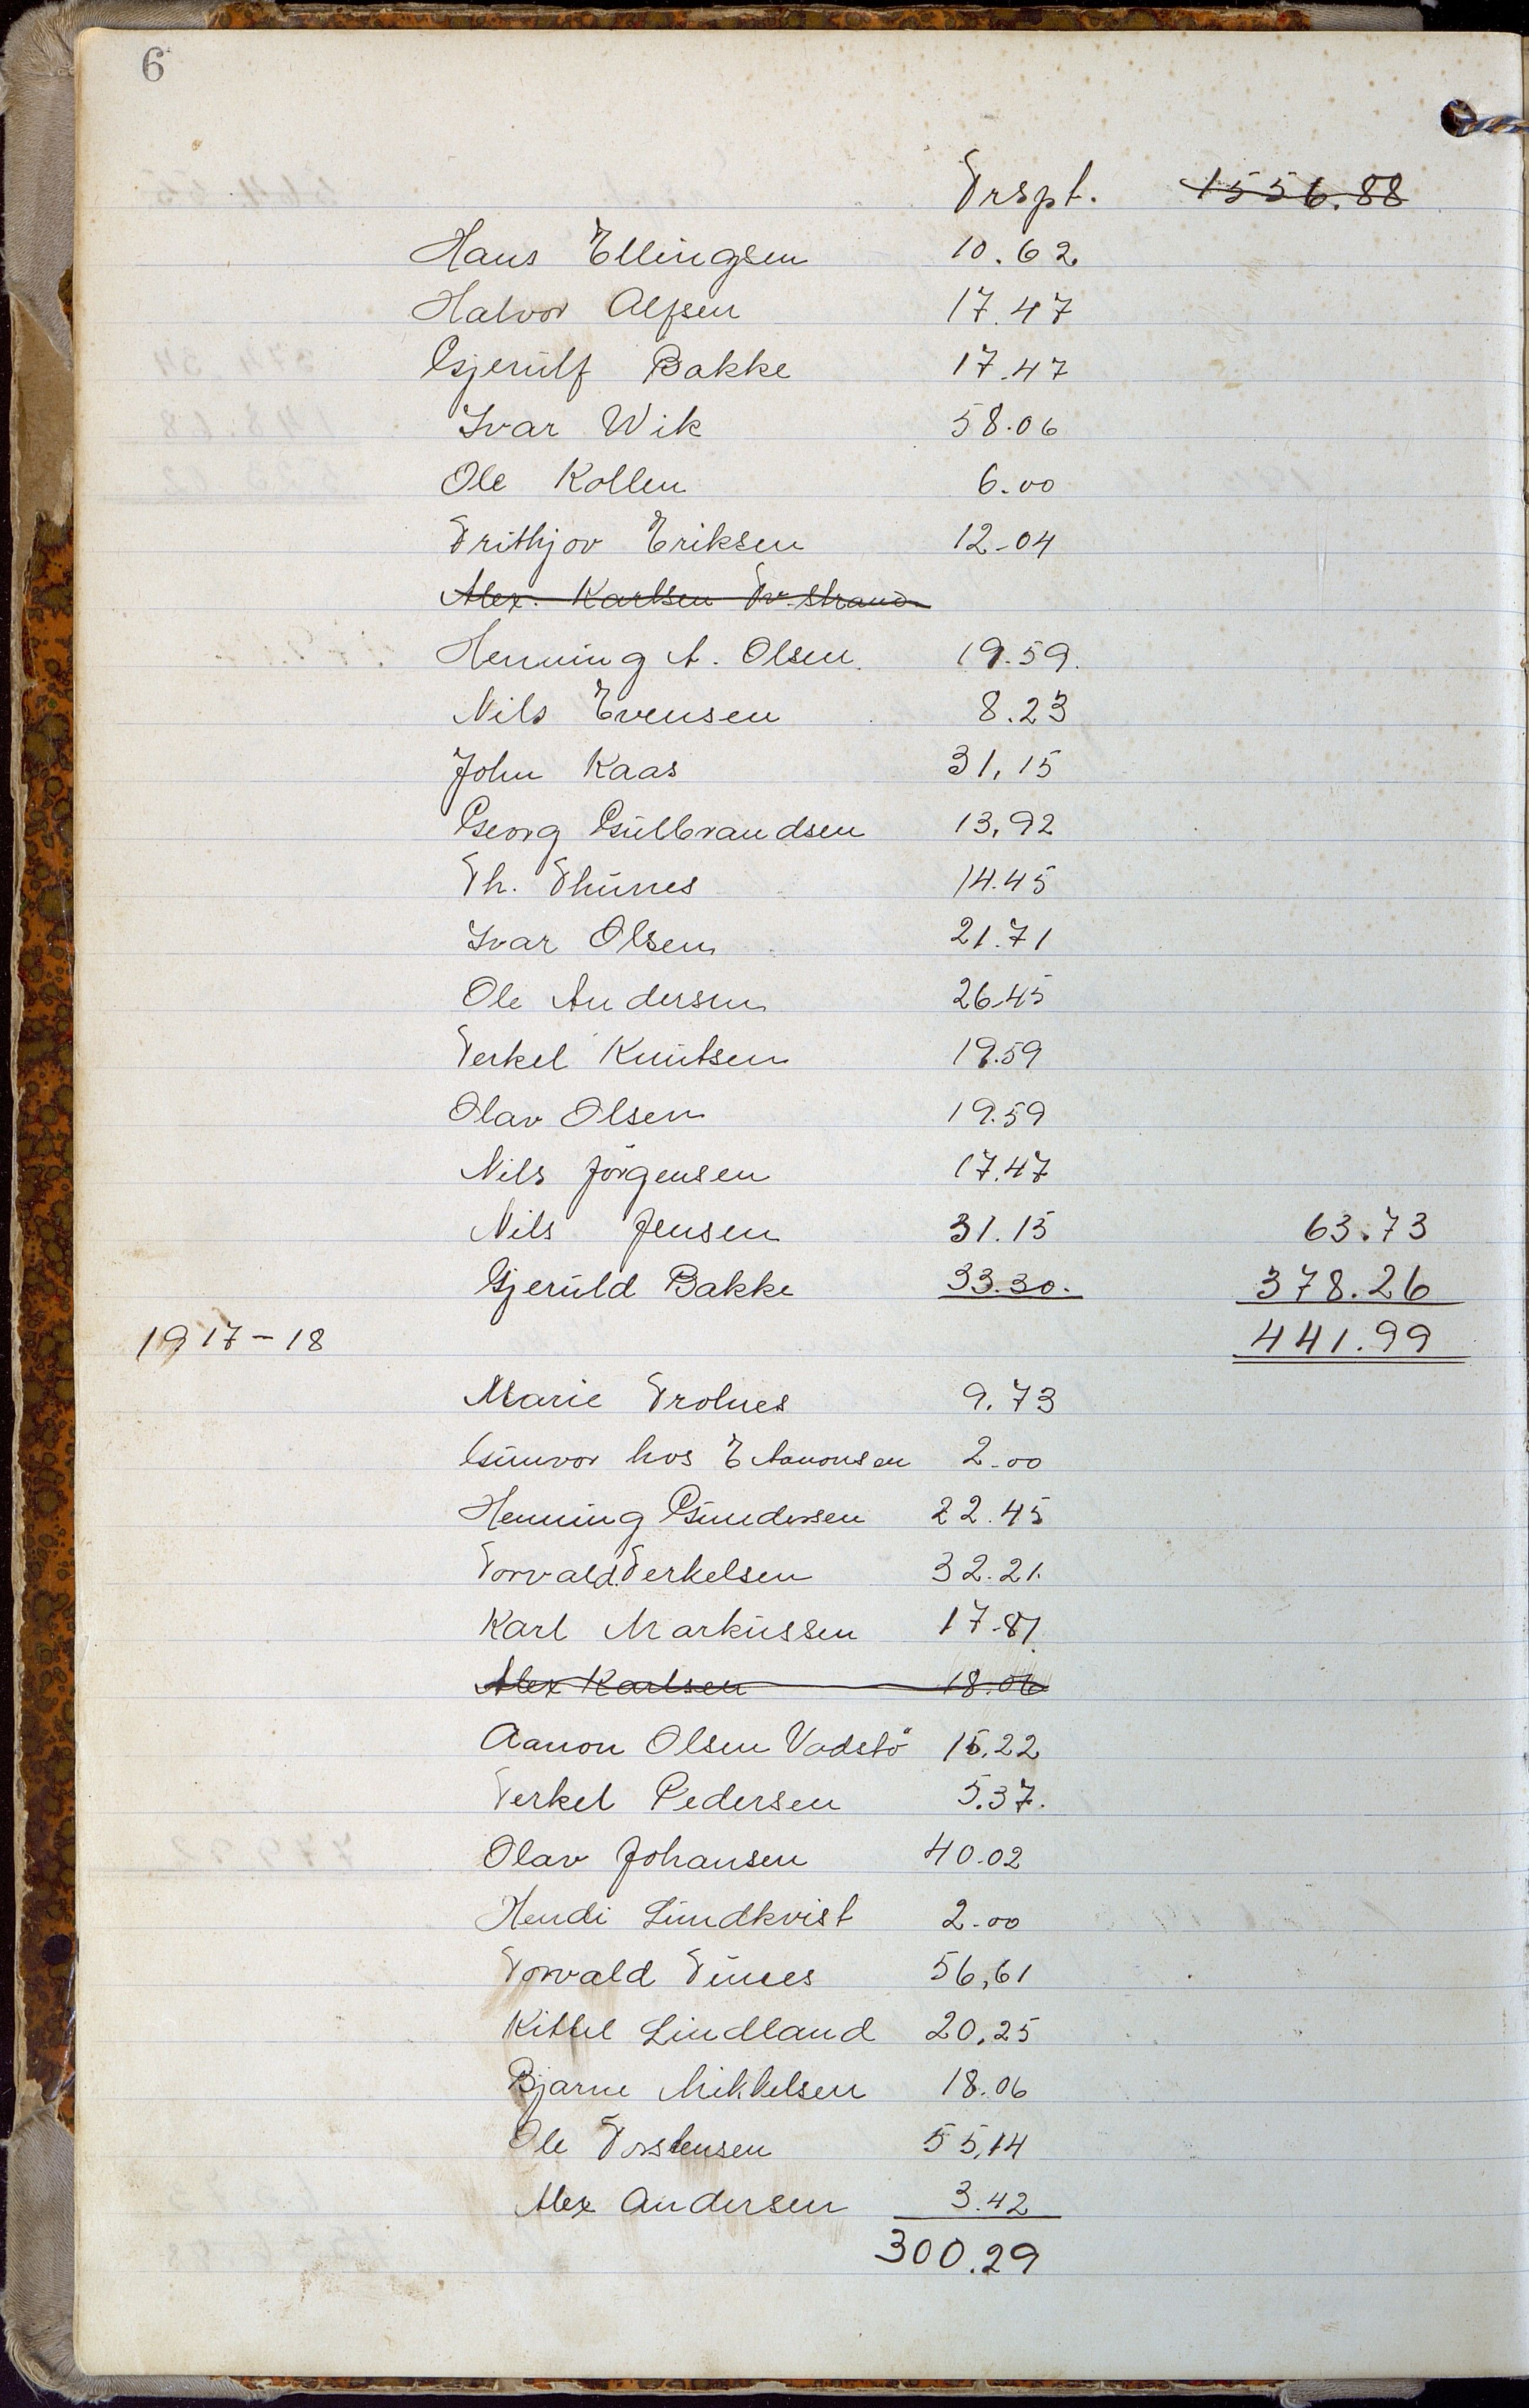 6
Trspt. 1556.88
Hans Ellingsen 10.62
Halvor Alfsen 17.47
Gjerulf Bakke 17.47
Ivar Wik 58.06
Ole Kollen 6.00
Frithjov Eriksen 12-04
Alex. Karlsen Tv.strand
Henning A. Olsen. 19.59.
Nils Evensen 8.23
John Kaas 31,15
Georg Gulbrandsen 13,92
Th. Thünes 14.45
Ivar Olsen 21.71
Ole Andersen 26.45
Terkel Knutsen 19.59
Olav Olsen 19.59
Nils Jörgensen 17.47
Nils Jensen 31.15 63.73
Gjeruld Bakke 33.30. 378.26
1917-18 441.99
Marie Frolnes 9.73
Gunvor hos E Aanonsen 2-00
Henning Gundersen 22.45
Torvald Terkelsen 32.21.
Karl Markussen 17-81
Alex Karlsen 18.06
Aanon Olsen Vadstö 15,22
Terkel Pedersen 5.37.
Olav Johansen 40.02
Hendi Lundkvist 2-00
Torvald Tünes 56,61
Kittel Lindland 20,25
Bjarne Mikkelsen 18.06
Ole Torstensen 55,14
Alex Andersen 3.42
300.29